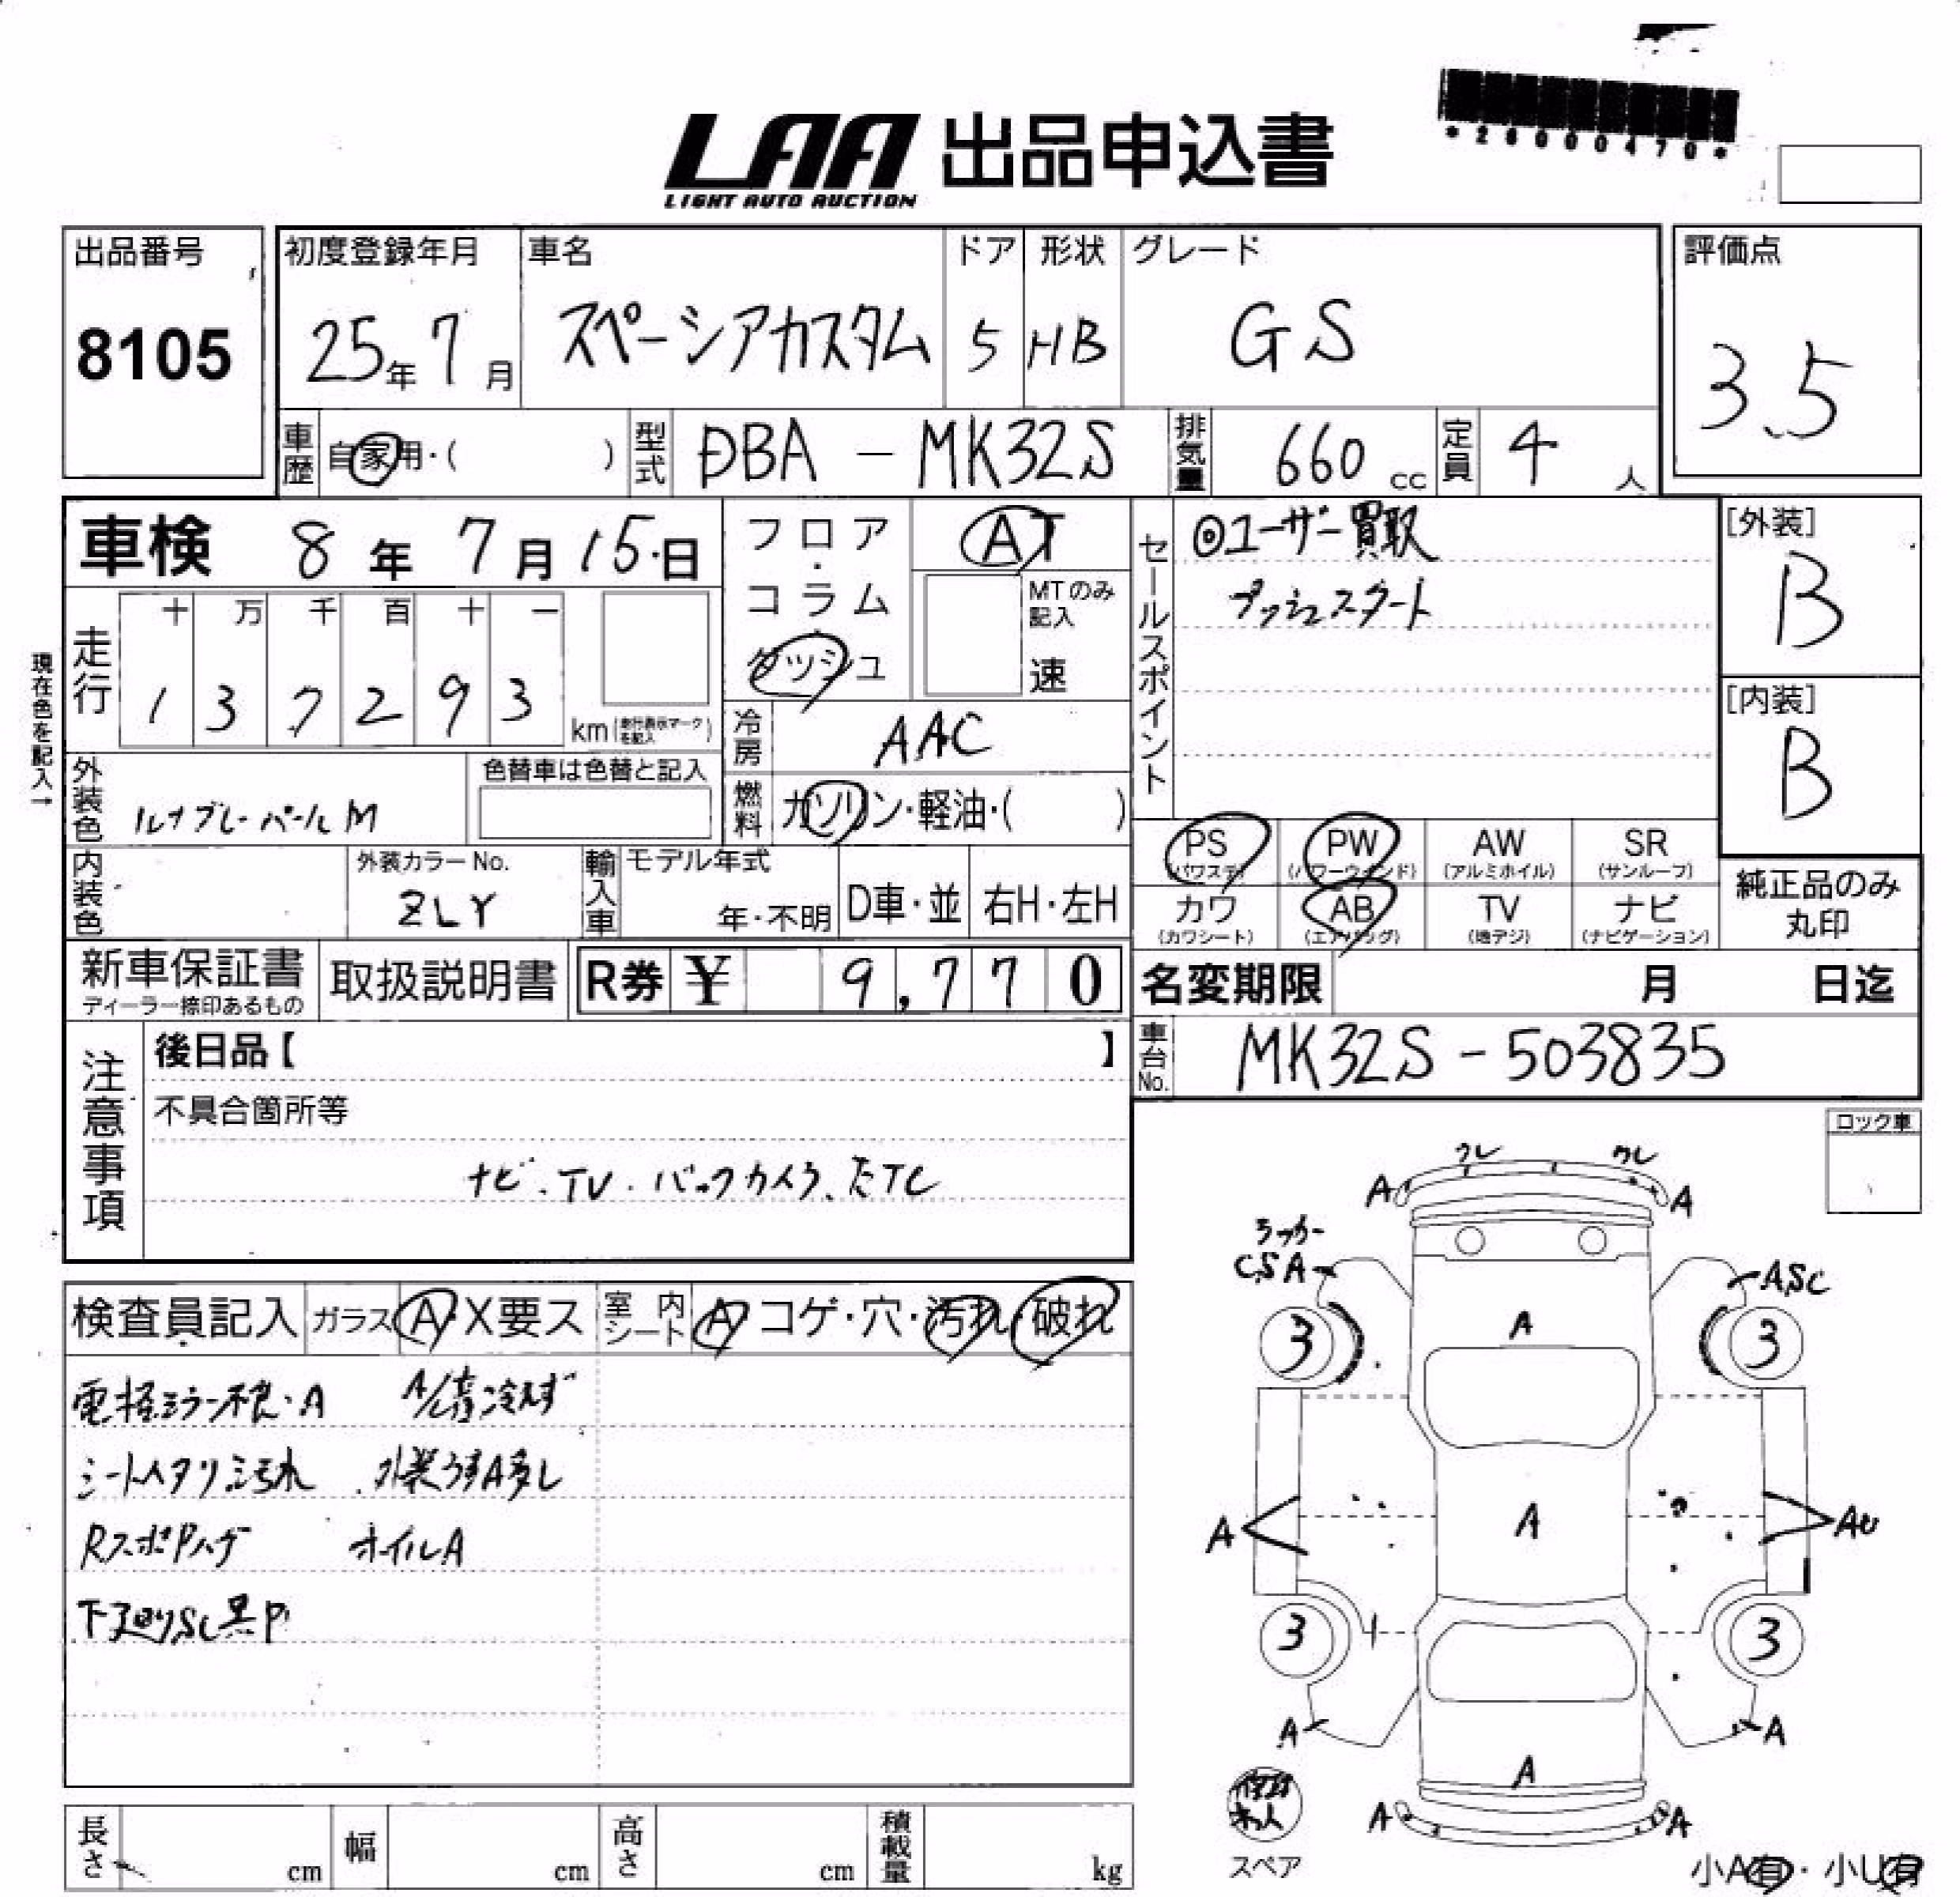 *26000470*
LAA 出品申込書
LIGHT AUTO AUCTION
出品番号
8105
初度登録年月
25年7月
車名
スペーシアカスタム
ドア
5
形状
HB
グレード
GS
評価点
3.5
車歴
自家用・( )
型式
DBA-MK32S
排気量
660cc
定員
4人
車検 8年7月15日
フロア
コラム
ダッシュ
AT
MTのみ記入
速
セールスポイント
◎ユーザー買取
プッシュスタート
[外装]
B
[内装]
B
現在色を記入→
走行
十 万 千 百 十 一
1 3 7 2 9 3
km(走行表示マークを記入)
冷房
AAC
燃料
ガソリン・軽油・( )
外装色
ルナグレーパールM
色替車は色替と記入
内装色
外装カラーNo.
ZLY
輸入車
モデル年式
年・不明
D車・並
右H・左H
PS
(パワステ)
PW
(パワーウィンド)
AW
(アルミホイル)
SR
(サンルーフ)
カワ
(カワシート)
AB
(エアバッグ)
TV
(地デジ)
ナビ
(ナビゲーション)
純正品のみ
丸印
新車保証書
ディーラー捺印あるもの
取扱説明書
R券 ¥ 9,770
名変期限 月 日迄
車台No.
MK32S-503835
注意事項
後日品【 】
不具合箇所等
ナビ・TV・バックカメラ、ETC
ロック車
検査員記入
ガラス A・X要ス
室内シート A・コゲ・穴・汚れ・破れ
電格ミラー不良・A A/C冷えず
シートヘタリ汚れ 外装うすA多し
RスポPハゲ ホイルA
下廻りSC黒P
ワレ ワレ
A A
ラッカー
CSA ASC
3 A 3
A A AU
3 3
A A
A
A A
スペア
小A有・小U有
長さ cm
幅 cm
高さ cm
積載量 kg